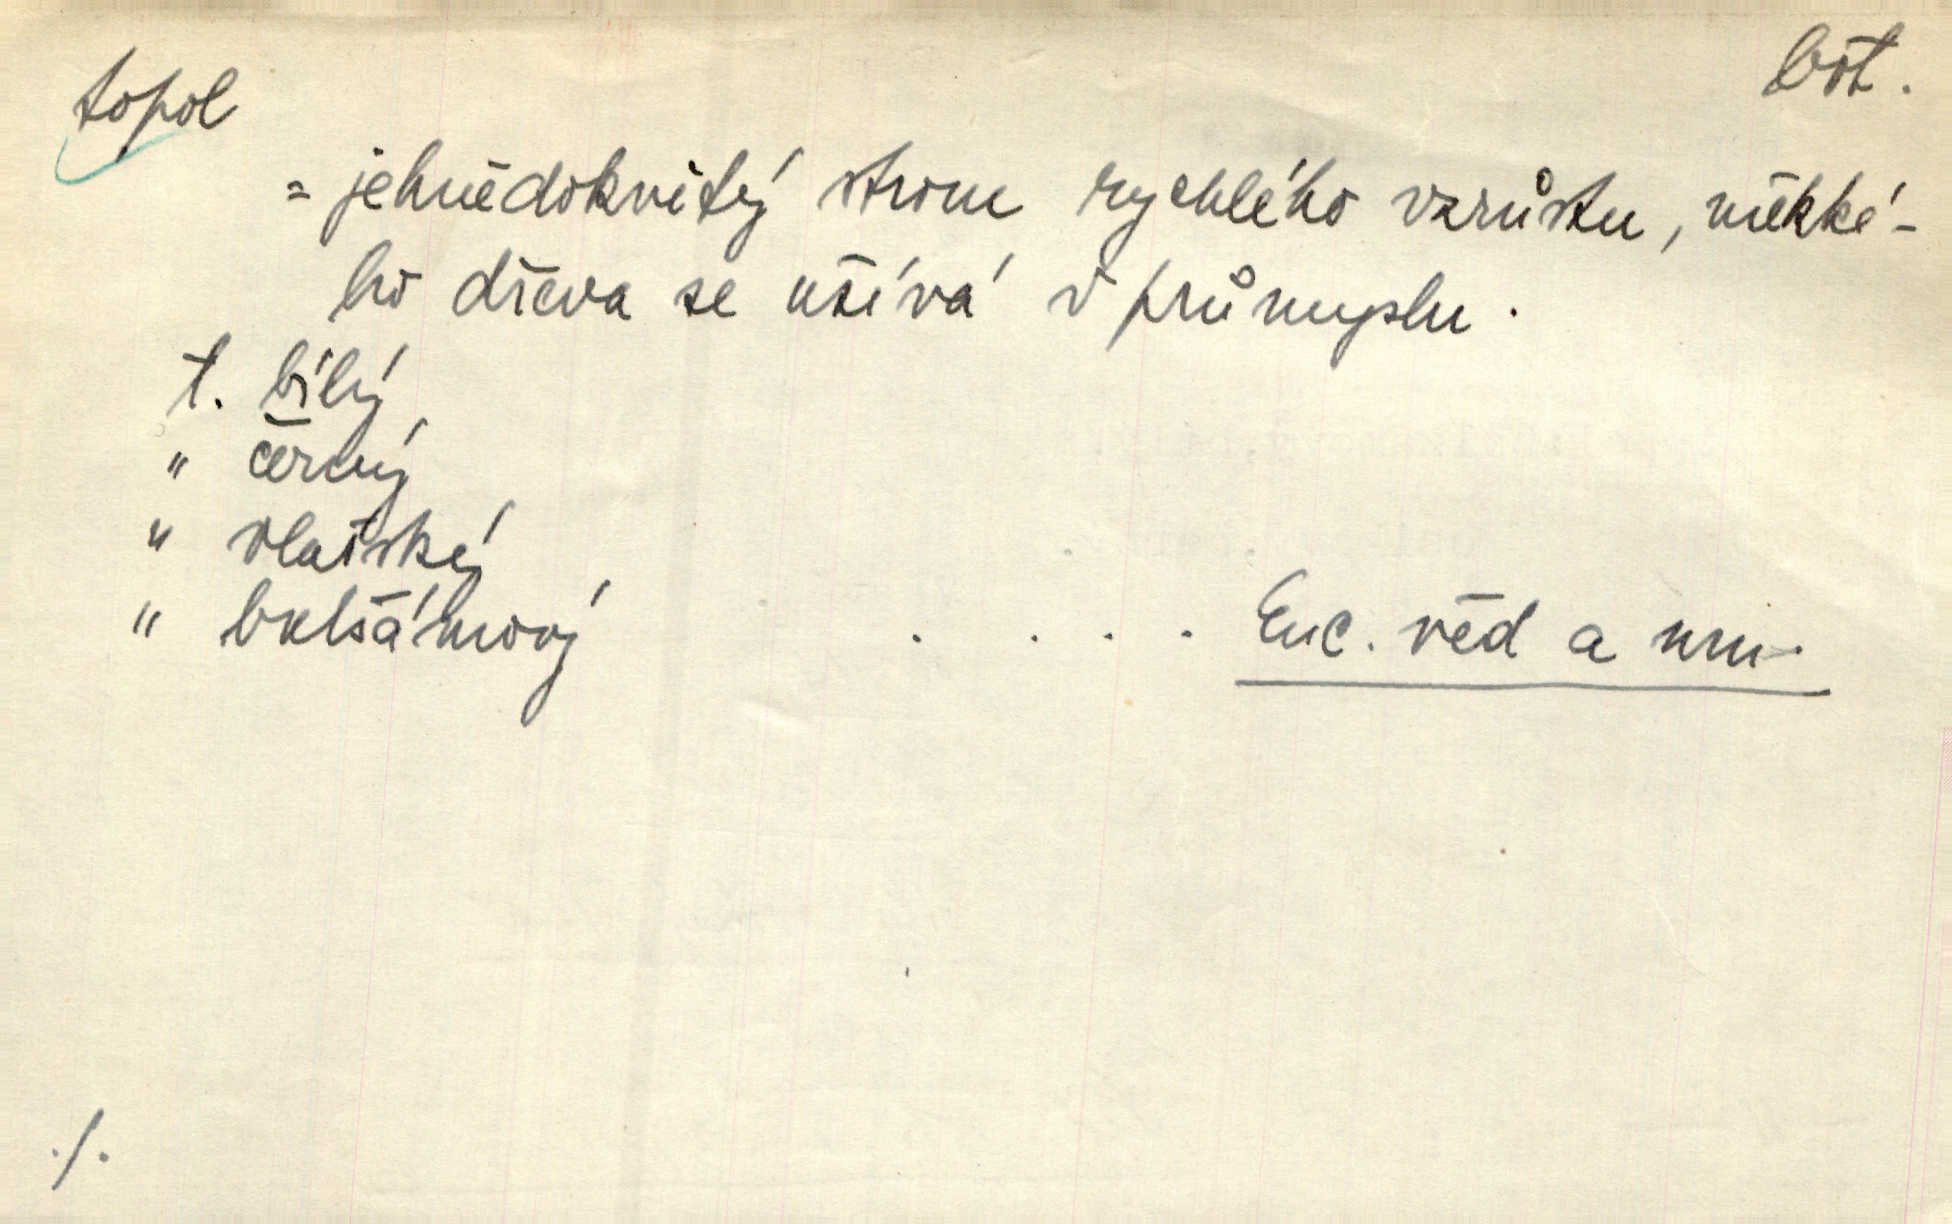 topol
bot.
= jehnědokvětý strom rychlého vzrůstu, měkké-
ho dřeva se užívá v průmyslu.
t. bílý
" černý
" vlašský
" balšámový . . . . Enc. věd a um.
./.